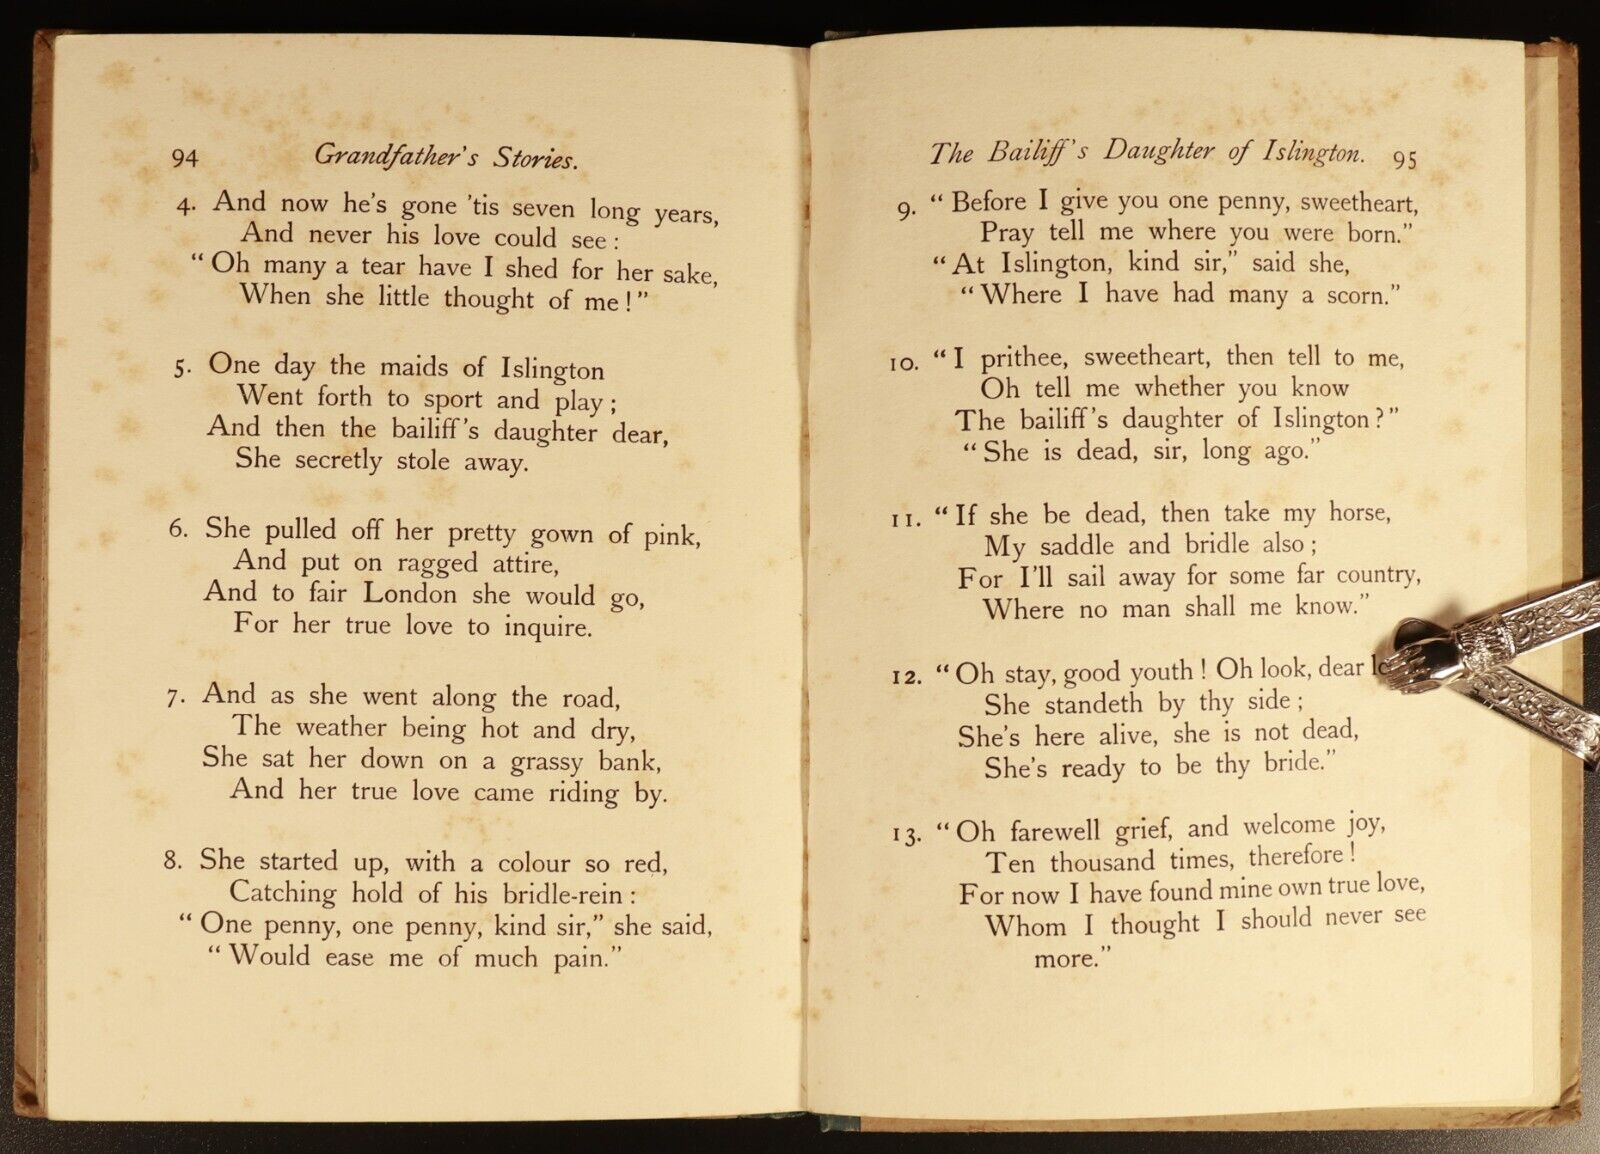 94 Grandfather's Stories.
4. And now he's gone 'tis seven long years,
And never his love could see :
“ Oh many a tear have I shed for her sake,
When she little thought of me ! ”
5. One day the maids of Islington
Went forth to sport and play ;
And then the bailiff's daughter dear,
She secretly stole away.
6. She pulled off her pretty gown of pink,
And put on ragged attire,
And to fair London she would go,
For her true love to inquire.
7. And as she went along the road,
The weather being hot and dry,
She sat her down on a grassy bank,
And her true love came riding by.
8. She started up, with a colour so red,
Catching hold of his bridle-rein :
“ One penny, one penny, kind sir,” she said,
“ Would ease me of much pain.”
The Bailiff's Daughter of Islington. 95
9. “ Before I give you one penny, sweetheart,
Pray tell me where you were born.”
“ At Islington, kind sir,” said she,
“ Where I have had many a scorn.”
10. “ I prithee, sweetheart, then tell to me,
Oh tell me whether you know
The bailiff's daughter of Islington ? ”
“ She is dead, sir, long ago.”
11. “ If she be dead, then take my horse,
My saddle and bridle also ;
For I'll sail away for some far country,
Where no man shall me know.”
12. “ Oh stay, good youth ! Oh look, dear
She standeth by thy side ;
She's here alive, she is not dead,
She's ready to be thy bride.”
13. “ Oh farewell grief, and welcome joy,
Ten thousand times, therefore !
For now I have found mine own true love,
Whom I thought I should never see
more.”